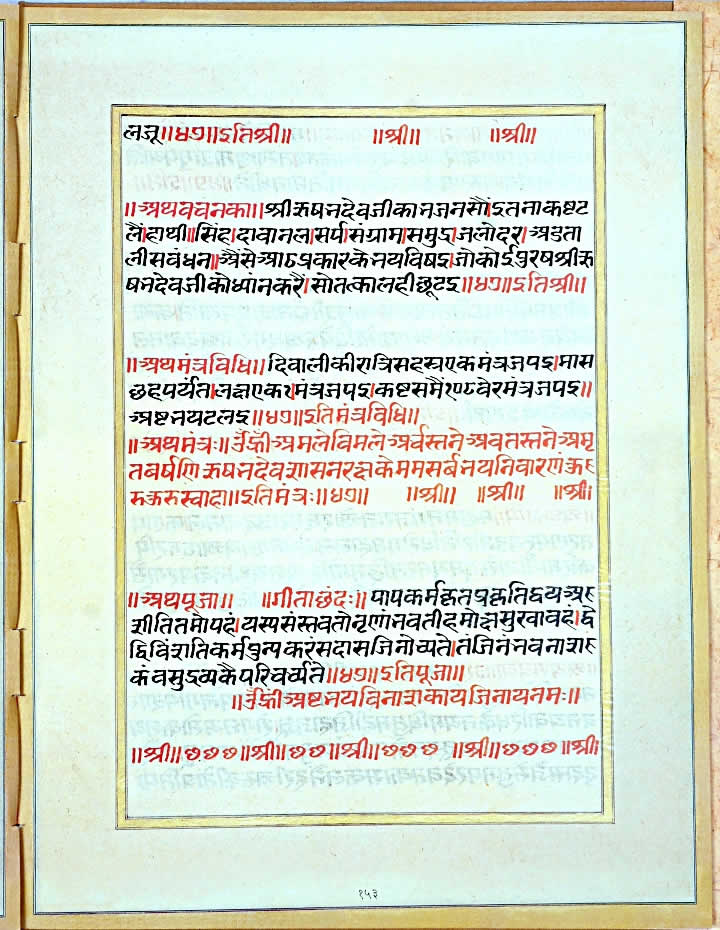 लजू॥४७॥इतिश्री॥ ॥श्री॥ ॥श्री॥
॥अथवचनका॥श्रीऋषभदेवजीकाभजनसौंइतनाकष्टट
लैं।हाथी॥सिंह।दावानल।सर्प।संग्राम।समुद्र।जलोदर।अडता
लीसबंधन।अैंसेआठप्रकारकेभयविषइ।जोकोईपुरषश्रीऋ
षभदेवजीकोध्यांनकरै।सोतत्कालहीछूटइ॥४७॥इतिश्री॥
॥अथमंत्रविधि॥दिवालीकीरात्रिसहस्रएकमंत्रजपइ।मास
छहपर्यंत।लक्षएक१मंत्रजपइ।कष्टसमैं१०८वेरमंत्रजपइ॥
अष्टभयटलइ॥४७॥इतिमंत्रविधि॥
॥अथमंत्रः॥ॐह्रीँअमलेविमले
तवर्षणिऋषभदेवशासनरक्षकेममसर्बभयनिवारणंकुरु
कुरुकुरुस्वाहा॥इतिमंत्रः॥४७॥ ॥श्री॥ ॥श्री॥ ॥श्री।
॥अथपूजा॥ ॥गीताछंदः॥ पापकर्मकृतप्रकृतिद्वयअ
शीतितमोपहं।यस्यसंस्तवतोनृणांभवतीहमोक्षसुखावहं।द्वे
द्विविंशतिकर्मपुन्यकरंसदासजिनोच्यते।तंजिनंभवनाशह
कंवसुद्रव्यकैपरिचर्यते॥४७॥इतिपूजा॥
॥ॐह्रीँअष्टभयविनाशकायजिनायनमः॥
॥श्री॥७७७॥श्री॥७७॥श्री॥७७७॥श्री॥७७७॥श्री।
१५३